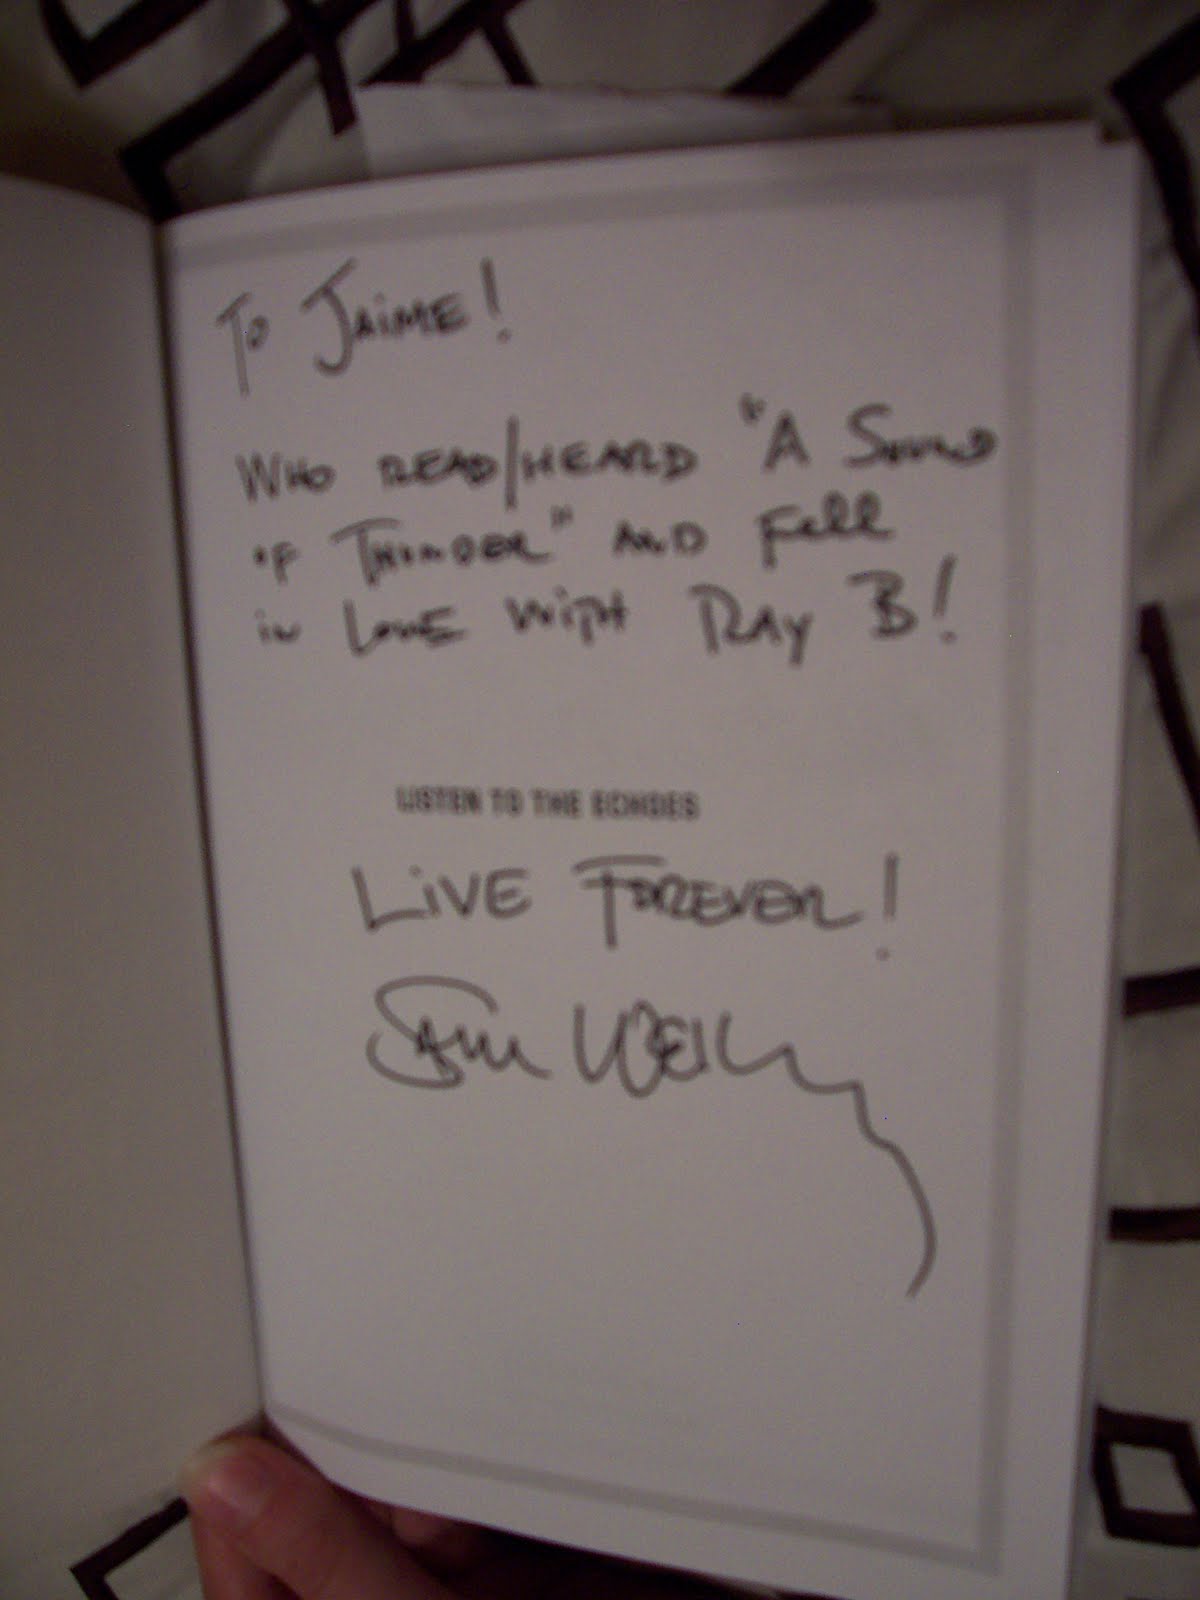 To JAiME!
WHO READ/HEARD "A Sound
of THUNDER" AND Fell
in LOVE WITH RAY B!
LISTEN TO THE ECHOES
LiVE FOREVER!
SAM WELLER